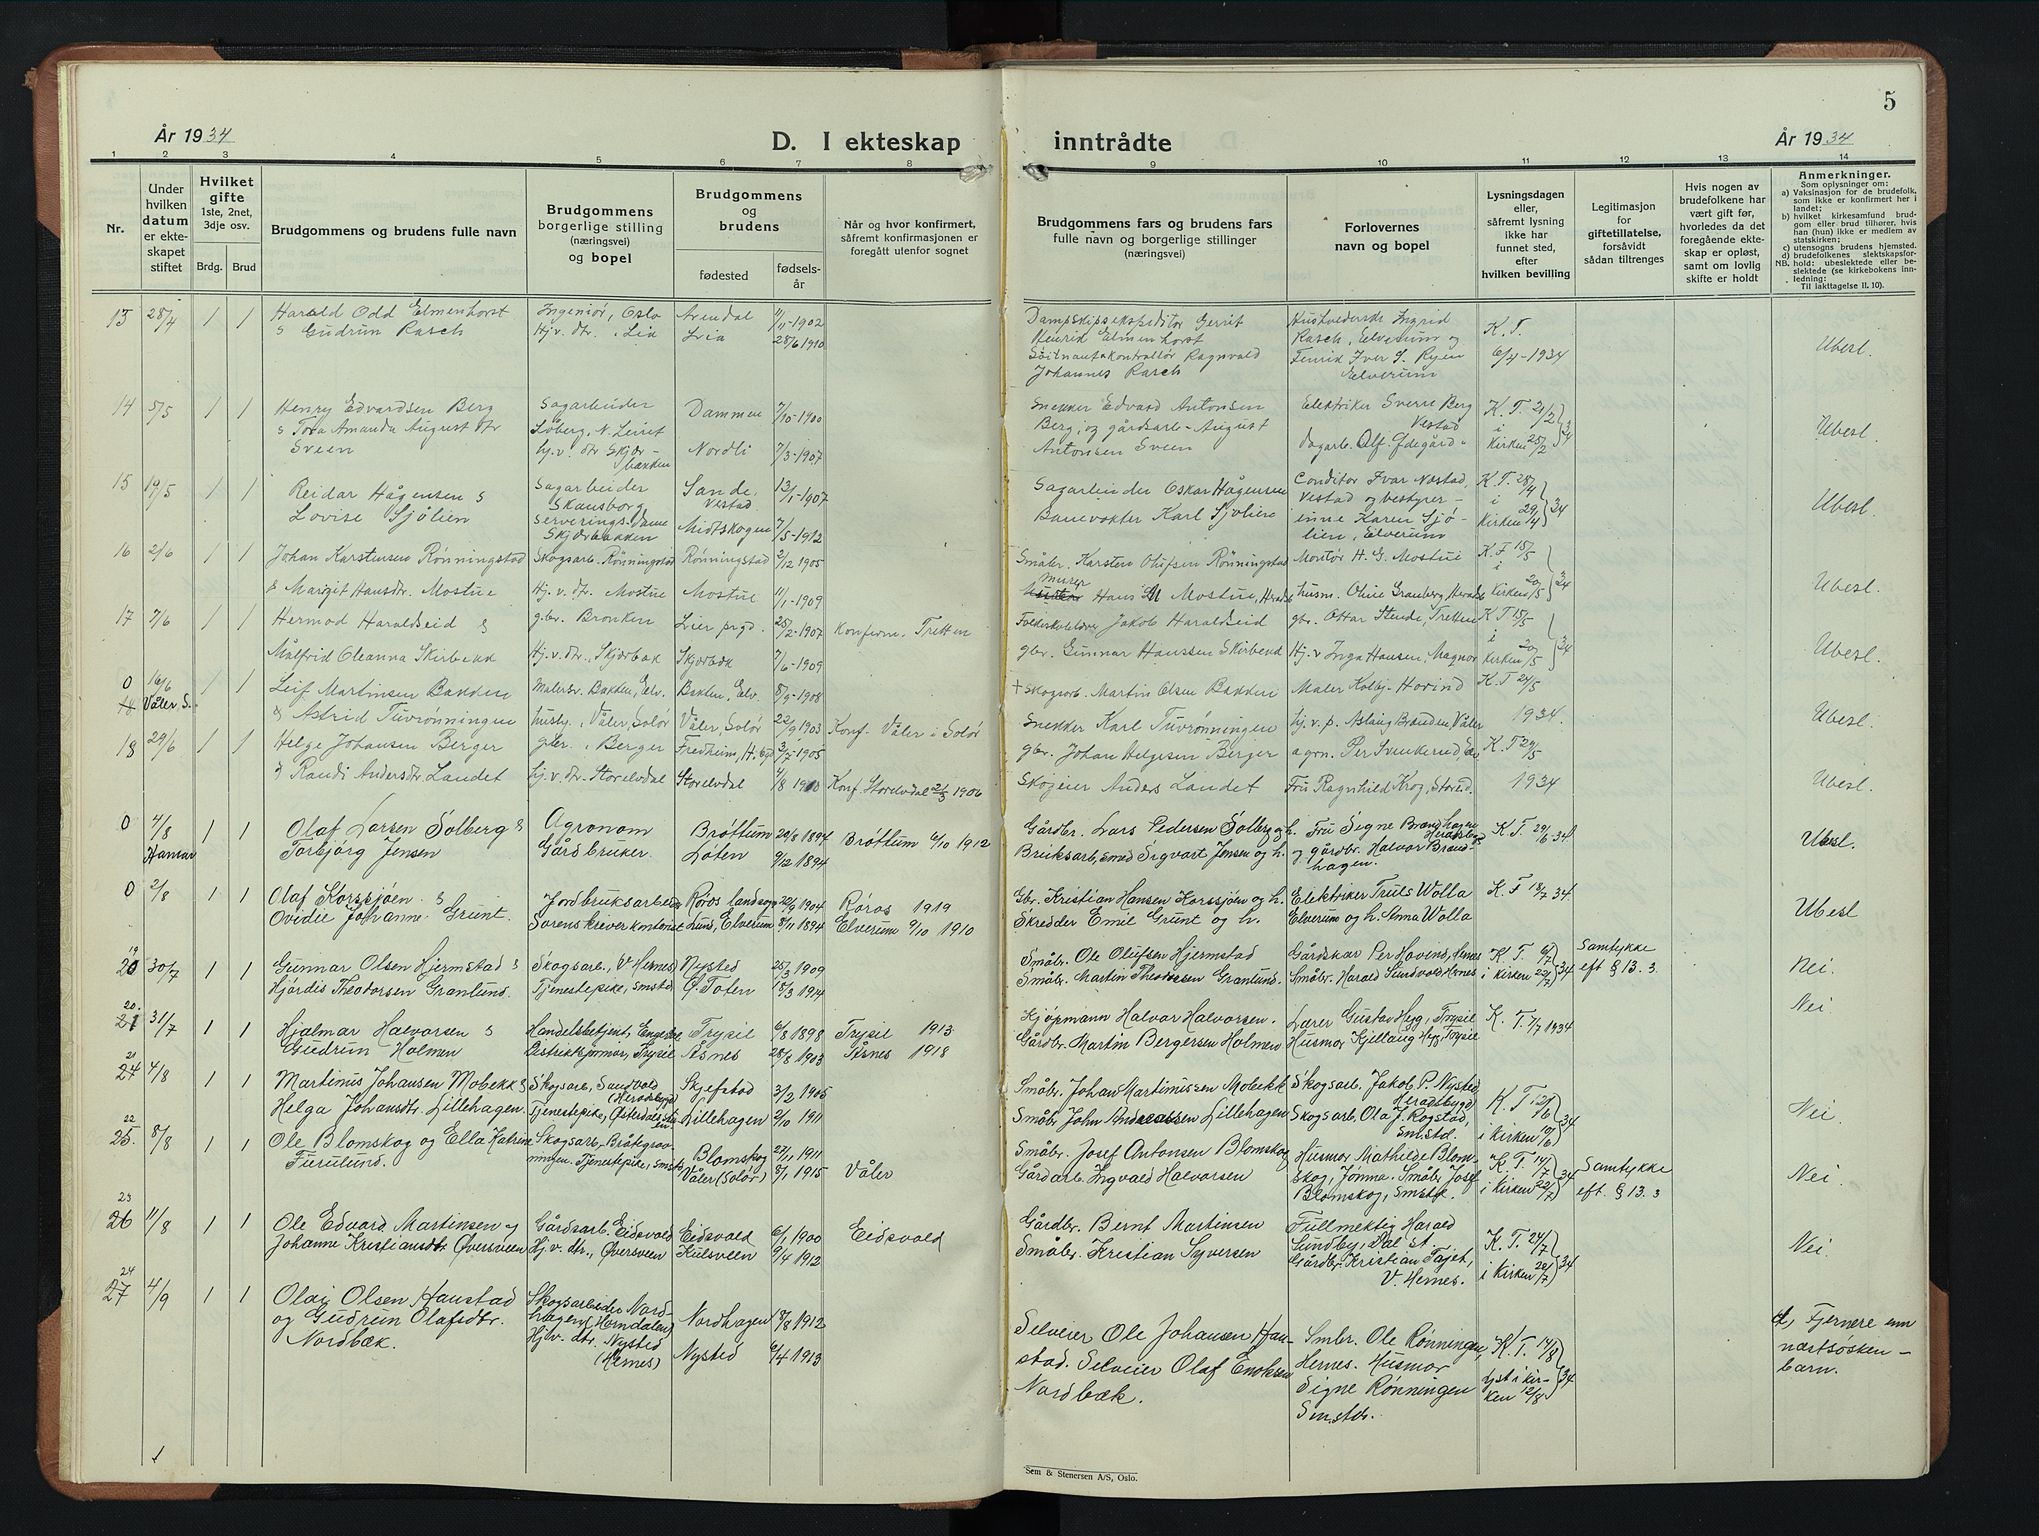 5
År 1934
D. I ekteskap inntrådte
År 1934
1 2 3 4 5 6 7 8 9 10 11 12 13 14
Nr.
Under hvilken datum er ekteskapet stiftet
Hvilket gifte
1ste, 2net, 3dje osv.
Brdg. Brud
Brudgommens og brudens fulle navn
Brudgommens borgerlige stilling (næringsvei) og bopel
Brudgommens og brudens
fødested
fødselsår
Når og hvor konfirmert, såfremt konfirmasjonen er foregått utenfor sognet
Brudgommens fars og brudens fars fulle navn og borgerlige stillinger (næringsvei)
Forlovernes navn og bopel
Lysningsdagen eller, såfremt lysning ikke har funnet sted, efter hvilken bevilling
Legitimasjon for giftetillatelse, forsåvidt sådan tiltrenges
Hvis nogen av brudefolkene har vært gift før, hvorledes da det foregående ekteskap er opløst, samt om lovlig skifte er holdt
Anmerkninger.
Som oplysninger om:
a) Vaksinasjon for de brudefolk, som ikke er konfirmert her i landet;
b) hvilket kirkesamfund brudgom eller brud tilhører, hvis han (hun) ikke er medlem av statskirken;
c) utensogns brudens hjemsted.
d) brudefolkenes slektskapsforhold: ubeslektede eller beslektede (se kirkebokens innledning:
NB.
Til iakttagelse II. 10).
13 28/4 1 1 Harald Odd Elmenhorst Ingeniør, Oslo Arendal 11/11-1902 Dampskipsekspeditør Gerrit Ingrid K. T.
& Gudrun Rasch Hj.v. dtr., Lia Lria 28/6 1910 Henrik Elmenhorst Rasch, Elverum og 6/4-1934 Ubesl.
Ragnvald Fenrik Iver S. Ryen
Johannes Rasch Elverum
14 5/5 1 1 Henry Edvardsen Berg Sagarbeider Dammen 7/10-1900 Snekker Edvard Antonsen Elektriker Sverre Berg K. T. 21/2 34
& Tora Amanda August dtr Løberg, N. Leiret Berg, og gårdsarb. August Vestad i Ubesl.
Sveen hj.v. dtr Skjærbakken Nordli 7/3-1907 Antonsen Sveen Kirken 25/2
15 19/5 1 1 Reidar Hågensen & Sagarbeider Sande, Vestad 13/1-1907 Sagarbeider Oskar Hågensen Conditor Ivar Næstad, K. T. 28/4 34
Lovise Sjølien Skansborg Serveringsdame Skjærbakken Midtskogen 7/5-1912 Banevokter Karl Sjølien Vestad og bestyrerinne Karen Sjølien, Elverum i Kirken 29/4 Ubesl.
16 2/6 1 1 Johan Karstensen Rønningstad Skogsarb. Rønningstad Rønningstad 2/12 1905 Småbr. Karsten Olufsen Rønningstad Montør H. G. Mostue K. T. 18/5 34
& Margit Hansdtr. Mostue Hj. v. dtr. Mostue Mostue 11/1-1909 murer Hans M Mostue, Heradsb husm. Oline Granberg, Heradsb i Kirken 20/5 Ubesl.
17 7/6 1 1 Hermod Haraldseid & gbr. Bronken Lier prgd. 28/2-1907 Konfirm. Tretten Jakob Haraldseid gbr. Ottar Stende, Tretten K T 15/5 34
Målfrid Oleanna Skirbekk Hj.v.dtr., Skjærbæk Skjærbæk 7/6-1909 gbr. Gunnar Hanssen Skirbekk Hj.v Inga Hansen, Magnor i Kirken 20/5 Ubesl.
0 16/6 1 1 Leif Martinsen Bakken Malersv. Bakken, Elv. Bakken, Elv. 8/9-1908 + Skogsarb. Martin Olsen Bakken Maler Kolbj. Hovind K.T 24/5
18 Våler, S. & Astrid Tuvrønningen husby., Våler, Solør Våler, Solør 22/9 1903 Konf. Våler i Solør Snekker Karl Tuvrønningen hj.v.p. Aslaug Branden, Våler 1934. Ubesl.
18 29/6 1 1 Helge Johansen Berger gbr., Berger Fredheim, 3/7-1905 gbr. Johan Helgesen Berger agron. Per Svenkerud, K. T 29/5
& Randi Andersdtr Landet hj.v.dtr. Storelvdal Storelvdal 4/8 1910 Konf. Storelvdal 21/3 1906 Skogeier Anders Landet Fru Ragnhild Krog, Storelvd. 1934 Ubesl.
0 4/8 1 1 Olaf Larsen Solberg & Agronom Brøttum 20/8 1897 Brøttum 4/10 1912 Gårdbr. Lars Pedersen Solberg og h. Fru Signe Brændhagen Heradsbygd K. T. 29/6 34. Ubesl.
Hamar Torbjørg Jensen Gårdbruker. Løten 9/12 1894 Bruksarb., smed Sigvart Jensen og h. og gårdbr. Halvor Brændhagen.
0 2/8 1 1 Olaf Korssjøen & Jordbruksarbeider Røros landsogn 22/2 1904 Røros 1919 Gbr. Kristian Hansen Korssjøen og h. Elektriker Truls Wolla K. T 18/7 34. Ubesl
Ovidie Johanne Grunt. Sorenskriverkontorist Lund, Elverum 8/11 1894 Elverum 9/10 1910 Skredder Emil Grunt og h. Elverum og h. Anna Wolla
19
20 30/7 1 1 Gunnar Olsen Hjermstad & Skogsarb., V Hernes Nysted 25/3 1909 Småbr. Ole Olufsen Hjermstad Gårdskar Per Hovind, Hernes K. T. 6/7 34 Samtykke
Hjørdis Theodorsen Granlund. Tjenestepike, smstd Ø. Toten 18/3 1914 Småbr. Martin Theodorsen Granlund. Småbr. Harald Sundvold Hernes i Kirken 22/7 eft § 13. 3. Nei.
20.
21 31/7 1 1 Hjalmar Halvorsen & Handelsbetjent, Engerdal Trysil 6/8 1898 Trysil 1913 Kjøpmann Halvor Halvorsen. Lærer Gustav Hyg, Trysil K. T. 7/7 1934 Nei.
Gudrun Holmen Distriktsjormor, Trysil Åsnes 28/8 1903 Åsnes 1918 Gårdbr. Martin Bergersen Holmen Husmor Kjellaug Hyg, Trysil
21
24 4/8 1 1 Martinus Johansen Mobekk & Skogsarb., Sandvold (Heradsbygd) Skjefstad 3/2 1905 Småbr. Johan Martinussen Mobekk Skogsarb. Jakob P. Nysted, Heradsbygd K. T 12/6 34
Helga Johansdtr. Lillehagen. Tjenestepike, Lillehagen 2/10 1911 Småbr. John Andreassen Lillehagen Skogsarb. Ola J. Rogstad, smstd. i Kirken 10/6 Nei.
22
25. 8/8 1 1 Ole Blomskog og Ella Katrine Skogsarb., Blomskog 27/1 1911 Småbr. Josef Antonsen Blomskog Husmor Mathilde Blomskog, Jømna. Småbr. Josef K. T. 14/7 34 Samtykke
Furulund. Tjenestepike, smstd. Våler (Solør) 8/1 1915 Våler Gårdarb. Ingvald Halvorsen Blomskog, smstd. i Kirken 22/7 eft. § 13. 3 Nei.
23
26 11/8 1 1 Ole Edvard Martinsen og Gårdsarb. Eidsvold Eidsvold 6/1 1900 Eidsvold Gårdbr. Bernt Martinsen Fullmektig Harald Sundby, Dal st. K. T. 24/7 34
Johanne Kristiansdtr. Øversveen Hj.v. dtr., Øversveen Kulsveen 9/4 1912 Småbr. Kristian Syversen Gårdbr. Kristian Tajet, V. Hernes. i Kirken 22/7 Nei.
24
27 4/9 1 1 Olav Olsen Haustad Skogsarbeider Nordhagen (Horndalen) Nordhagen 18/8 1912 Selveier Ole Johansen Haustad. Smbr. Ole Rønningen, Hernes. K. T. 14/8 34 d, Fjernere enn
og Gudrun Olafsdtr. Nordbæk. Hjv. dtr. Nysted (Hernes) Nysted 6/4 1913 Selveier Olaf Enoksen Nordbæk. Husmor Signe Rønningen Smstds. lyst i kirken 12/8 næstsøskenbarn.
Sem & Stenersen A/S, Oslo.